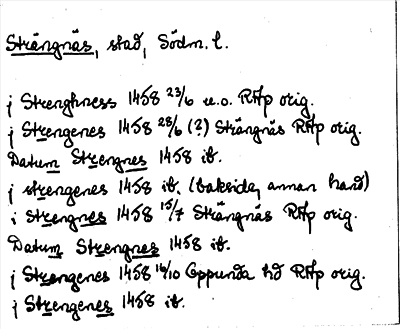 Strängnäs, stad, Södm. l.
j Strenghness 1458 23/6 u.o. RAp orig.
j Strengenes 1458 28/6 (?) Strängnäs RAp orig.
Datum Strengnes 1458 ib.
j strengenes 1458 ib. (baksida, annan hand)
i Strengnes 1458 15/7 Strängnäs RAp orig.
Datum Strengnes 1458 ib.
j Strengenes 1458 16/10 Oppunda hd RAp orig.
j Strengenes 1458 ib.